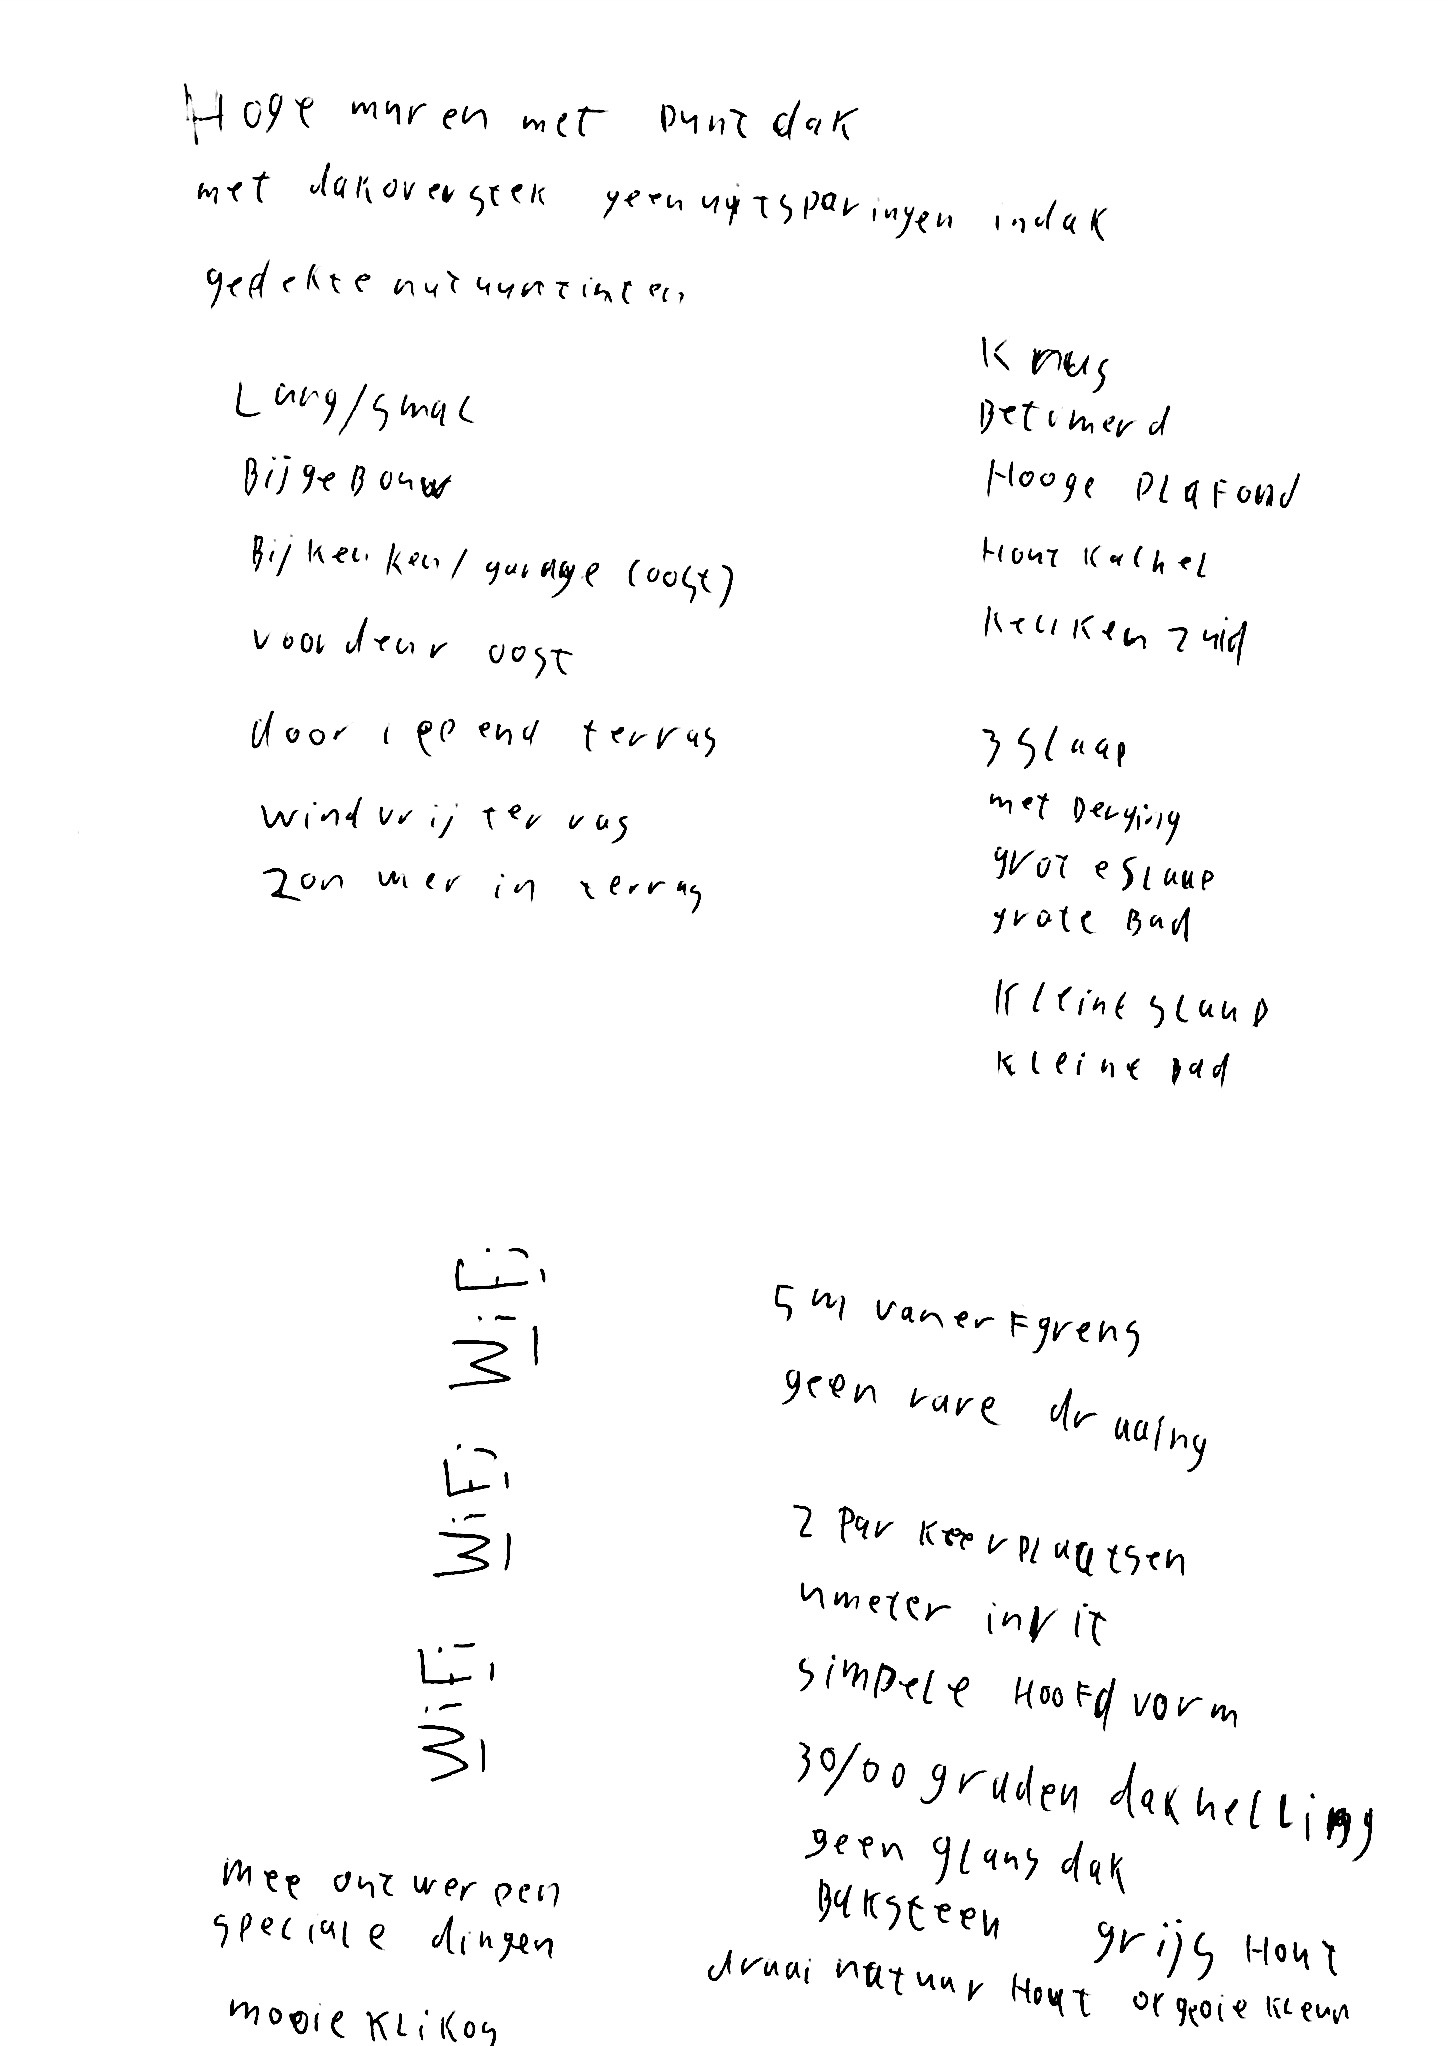 Hoge muren met puntdak
met dakoversteek geen uitsparingen in dak
gedekte natuurtinten
Lang/smal
Bijgebouw
Bijkeuken/garage (oost)
voordeur oost
doorlopend terras
windvrij terras
zon meer in terras
Knus
Betimerd
Hooge plafond
Hout kachel
Keuken zuid
3 slaap
met Berging
grote slaap
grote Bad
Kleine slaap
kleine bad
WiFi WiFi WiFi
5 m van erfgrens
geen rare draaing
2 parkeerplaatsen
4 meter inrit
simpele Hoofdvorm
30/60 graden dakhelling
geen glans dak
Baksteen grijs Hout
draai natuur Hout of geoie kleur
mee ontwerpen
speciale dingen
mooie klikos